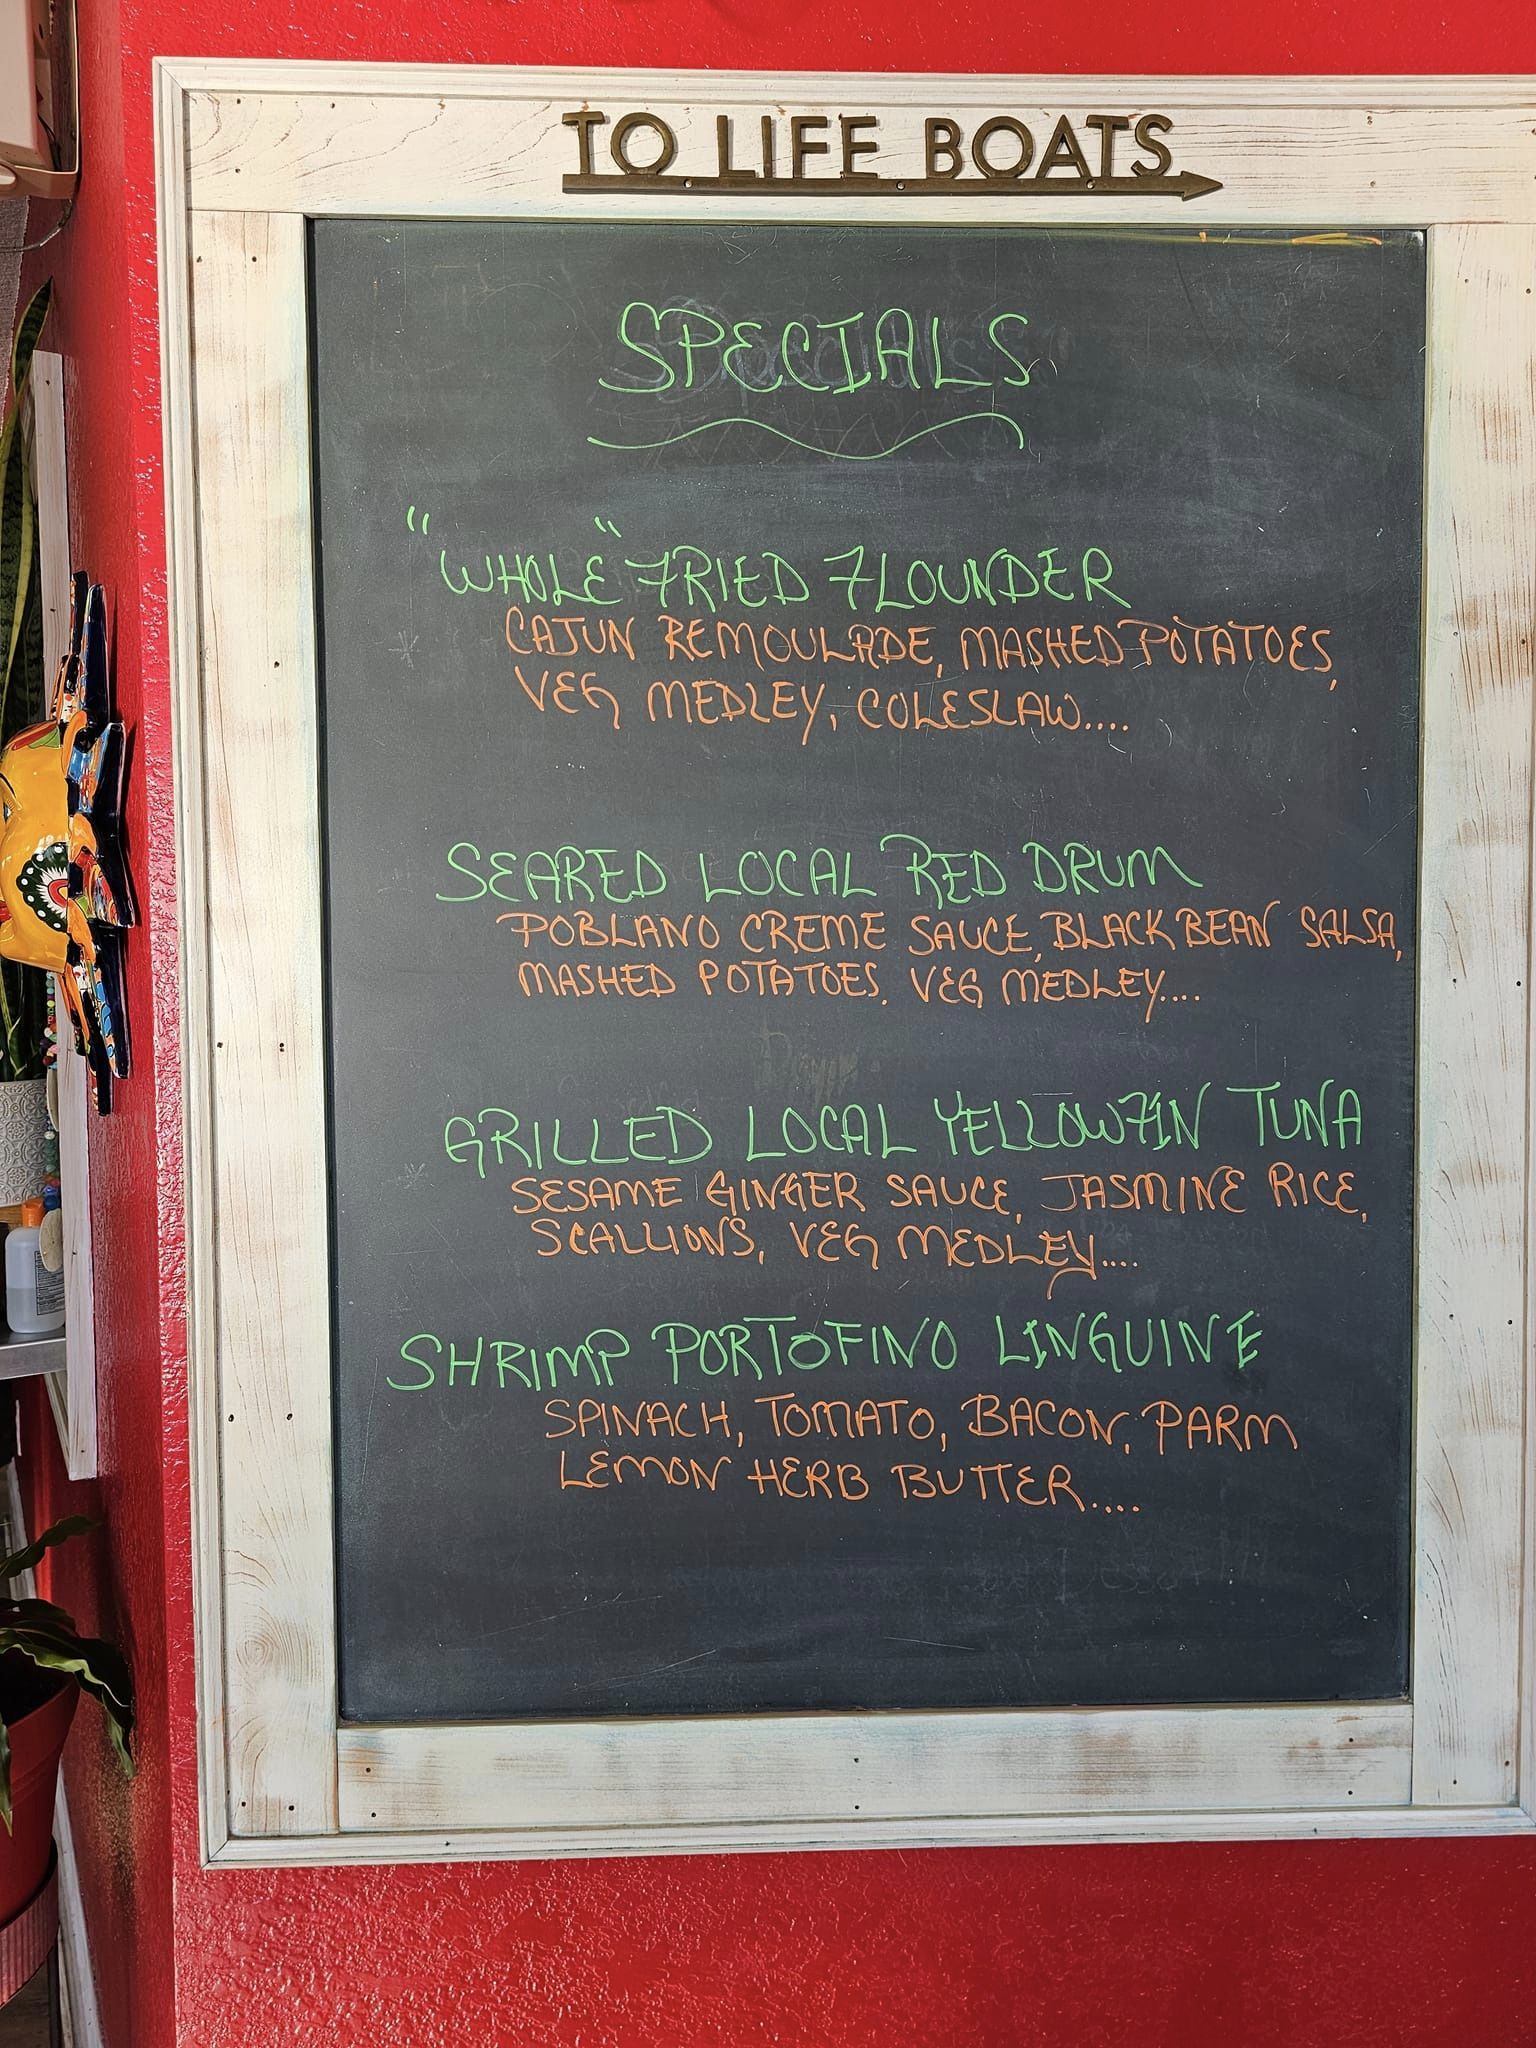 TO LIFE BOATS
SPECIALS
"WHOLE" FRIED FLOUNDER
CAJUN REMOULADE, MASHED POTATOES,
VEG MEDLEY, COLESLAW....
SEARED LOCAL RED DRUM
POBLANO CREME SAUCE, BLACK BEAN SALSA,
MASHED POTATOES, VEG MEDLEY....
GRILLED LOCAL YELLOWFIN TUNA
SESAME GINGER SAUCE, JASMINE RICE,
SCALLIONS, VEG MEDLEY....
SHRIMP PORTOFINO LINGUINE
SPINACH, TOMATO, BACON, PARM
LEMON HERB BUTTER....